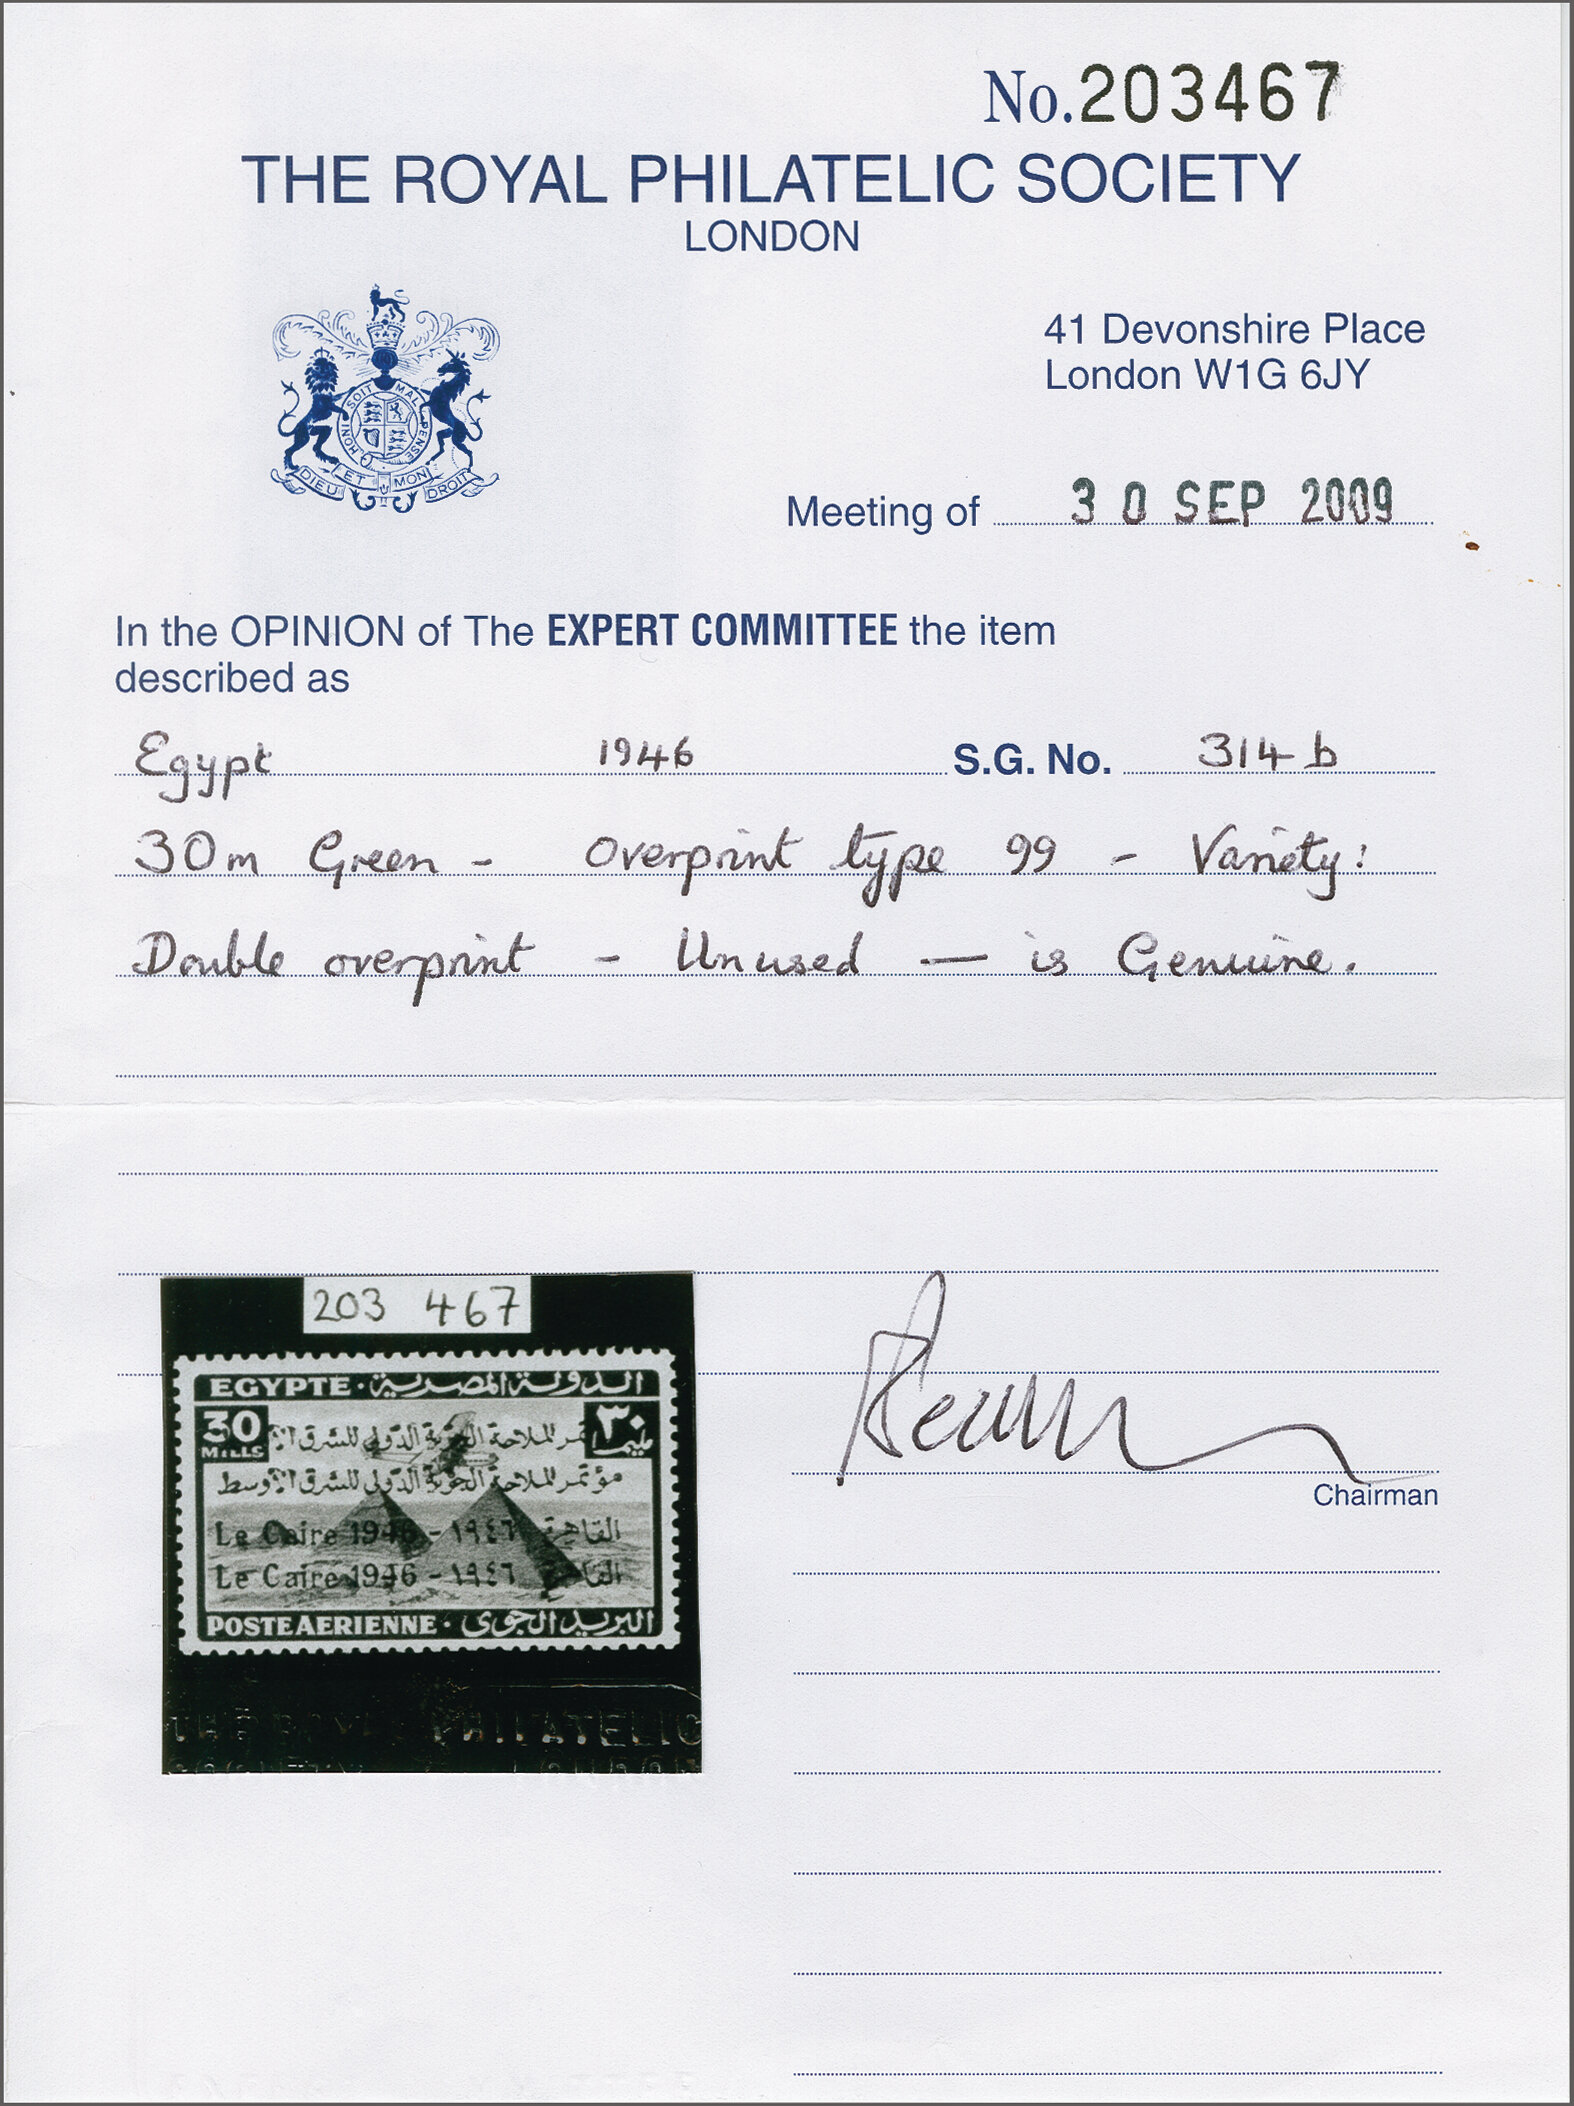 No. 203467
THE ROYAL PHILATELIC SOCIETY
LONDON
HONI SOIT MAL PENSE
DIEU ET MON DROIT
41 Devonshire Place
London W1G 6JY
Meeting of 30 SEP 2009
In the OPINION of The EXPERT COMMITTEE the item
described as
Egypt 1946 S.G. No. 314 b
30m Green - Overprint type 99 - Variety:
Double overprint - Unused — is Genuine.
203 467
EGYPTE · الدولة المصرية
30 MILLS تمر للملاحة الجوية الدولى للشرق الأ ٣٠ مليما
مؤتمر للملاحة الجوية الدولى للشرق الأوسط
Le Caire 1946 - ١٩٤٦ القاهرة
Le Caire 1946 - ١٩٤٦ القاهرة
POSTE AERIENNE · البريد الجوى
THE ROYAL PHILATELIC
SOCIETY LONDON
Chairman